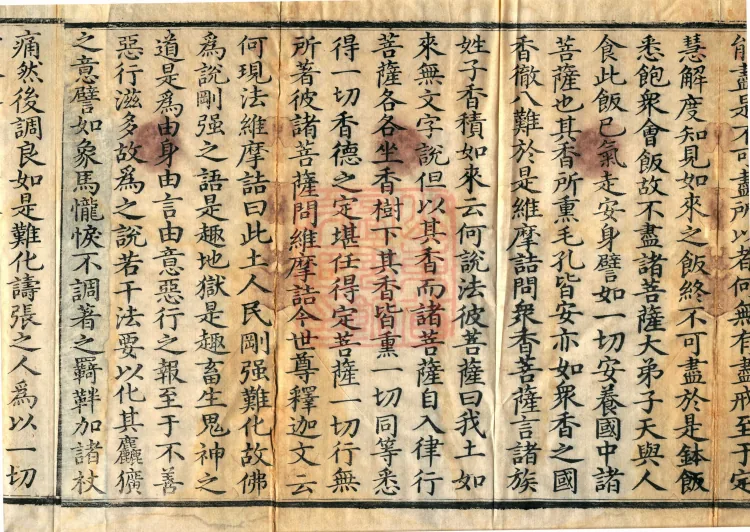 能盡是不可盡所以者何無有盡戒至于定
慧解度知見如來之飯終不可盡於是鉢飯
悉飽衆會飯故不盡諸菩薩大弟子天與人
食此飯已氣走安身譬如一切安養國中諸
菩薩也其香所熏毛孔皆安亦如衆香之國
香徹八難於是維摩詰問衆香菩薩言諸族
姓子香積如來云何說法彼菩薩曰我土如
來無文字說但以其香而諸菩薩自入律行
菩薩各各坐香樹下其香皆熏一切同等悉
得一切香德之定堪任得定菩薩一切行無
所著彼諸菩薩問維摩詰今世尊釋迦文云
何現法維摩詰曰此土人民剛强難化故佛
爲說剛强之語是趣地獄是趣畜生鬼神之
道是爲由身由言由意惡行之報至于不善
惡行滋多故爲之說若干法要以化其麤獷
之意譬如象馬㦜悷不調著之羇靽加諸杖
痛然後調良如是難化譸張之人爲以一切